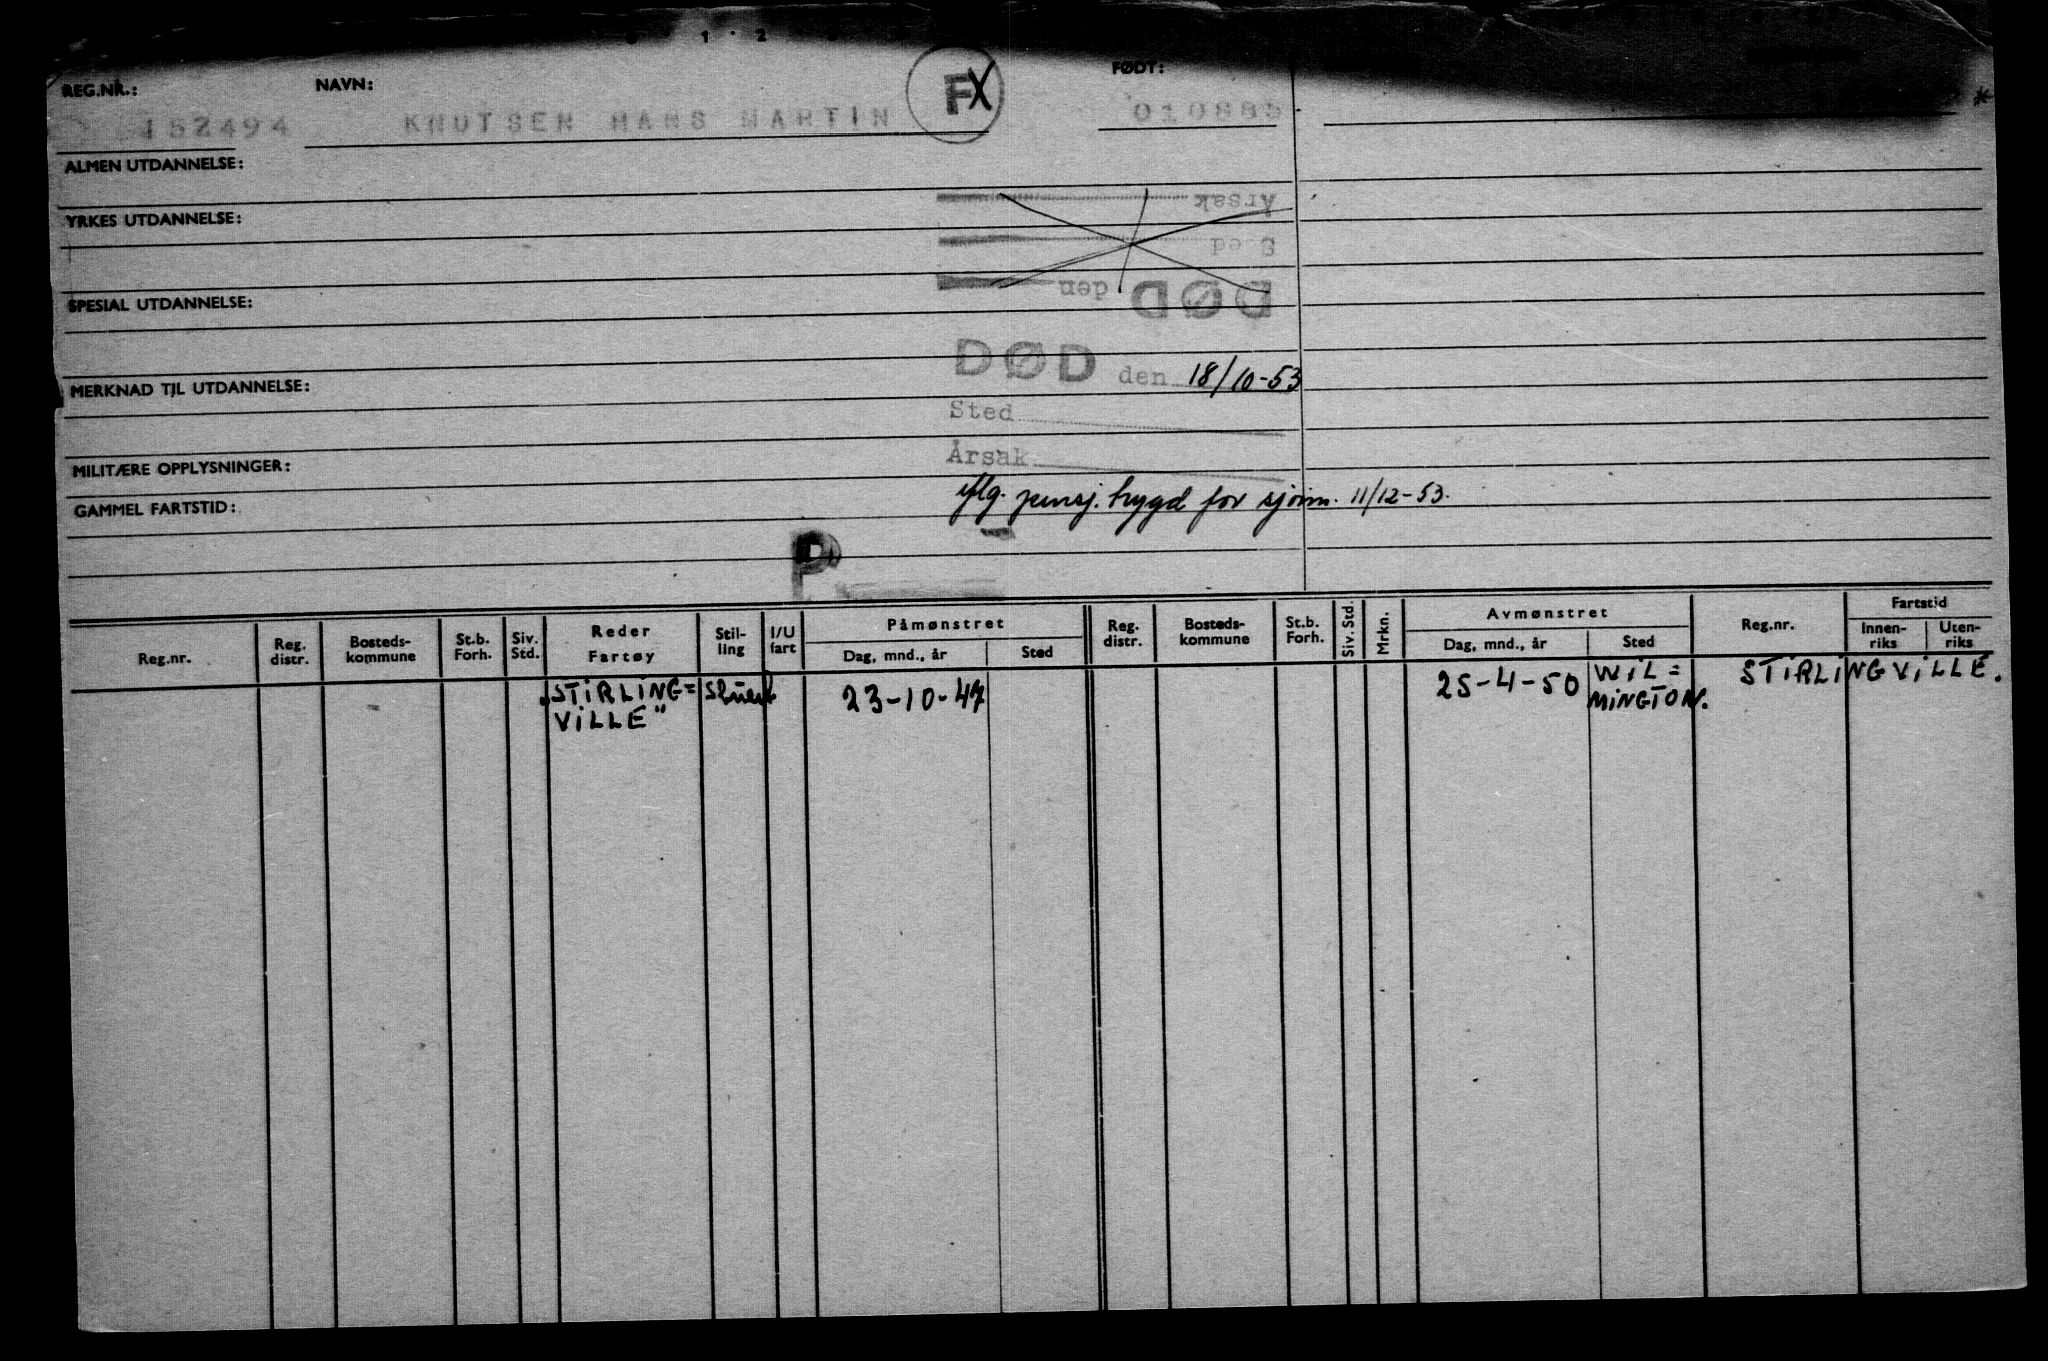 1 · 2
REG.NR.: NAVN: FX FØDT:
152494 KNUTSEN HANS MARTIN 010885 *
ALMEN UTDANNELSE:
Årsak
YRKES UTDANNELSE:
S ed
DØD den
SPESIAL UTDANNELSE:
DØD den 18/10-53
MERKNAD TIL UTDANNELSE:
Sted
Årsak
MILITÆRE OPPLYSNINGER:
iflg. pensj. trygd for sjøm. 11/12-53.
GAMMEL FARTSTID:
P
Reg.nr. Reg. distr. Bosteds-kommune St.b. Forh. Siv. Std. Reder Fartøy Stil-ling I/U fart Påmønstret Dag, mnd., år Sted Reg. distr. Bosteds-kommune St.b. Forh. Siv. Std. Mrkn. Avmønstret Dag, mnd., år Sted Reg.nr. Fartstid Innen-riks Uten-riks
„STIRLING= 23-10-47 25-4-50 WIL= STIRLINGVILLE.
VILLE" MINGTON.